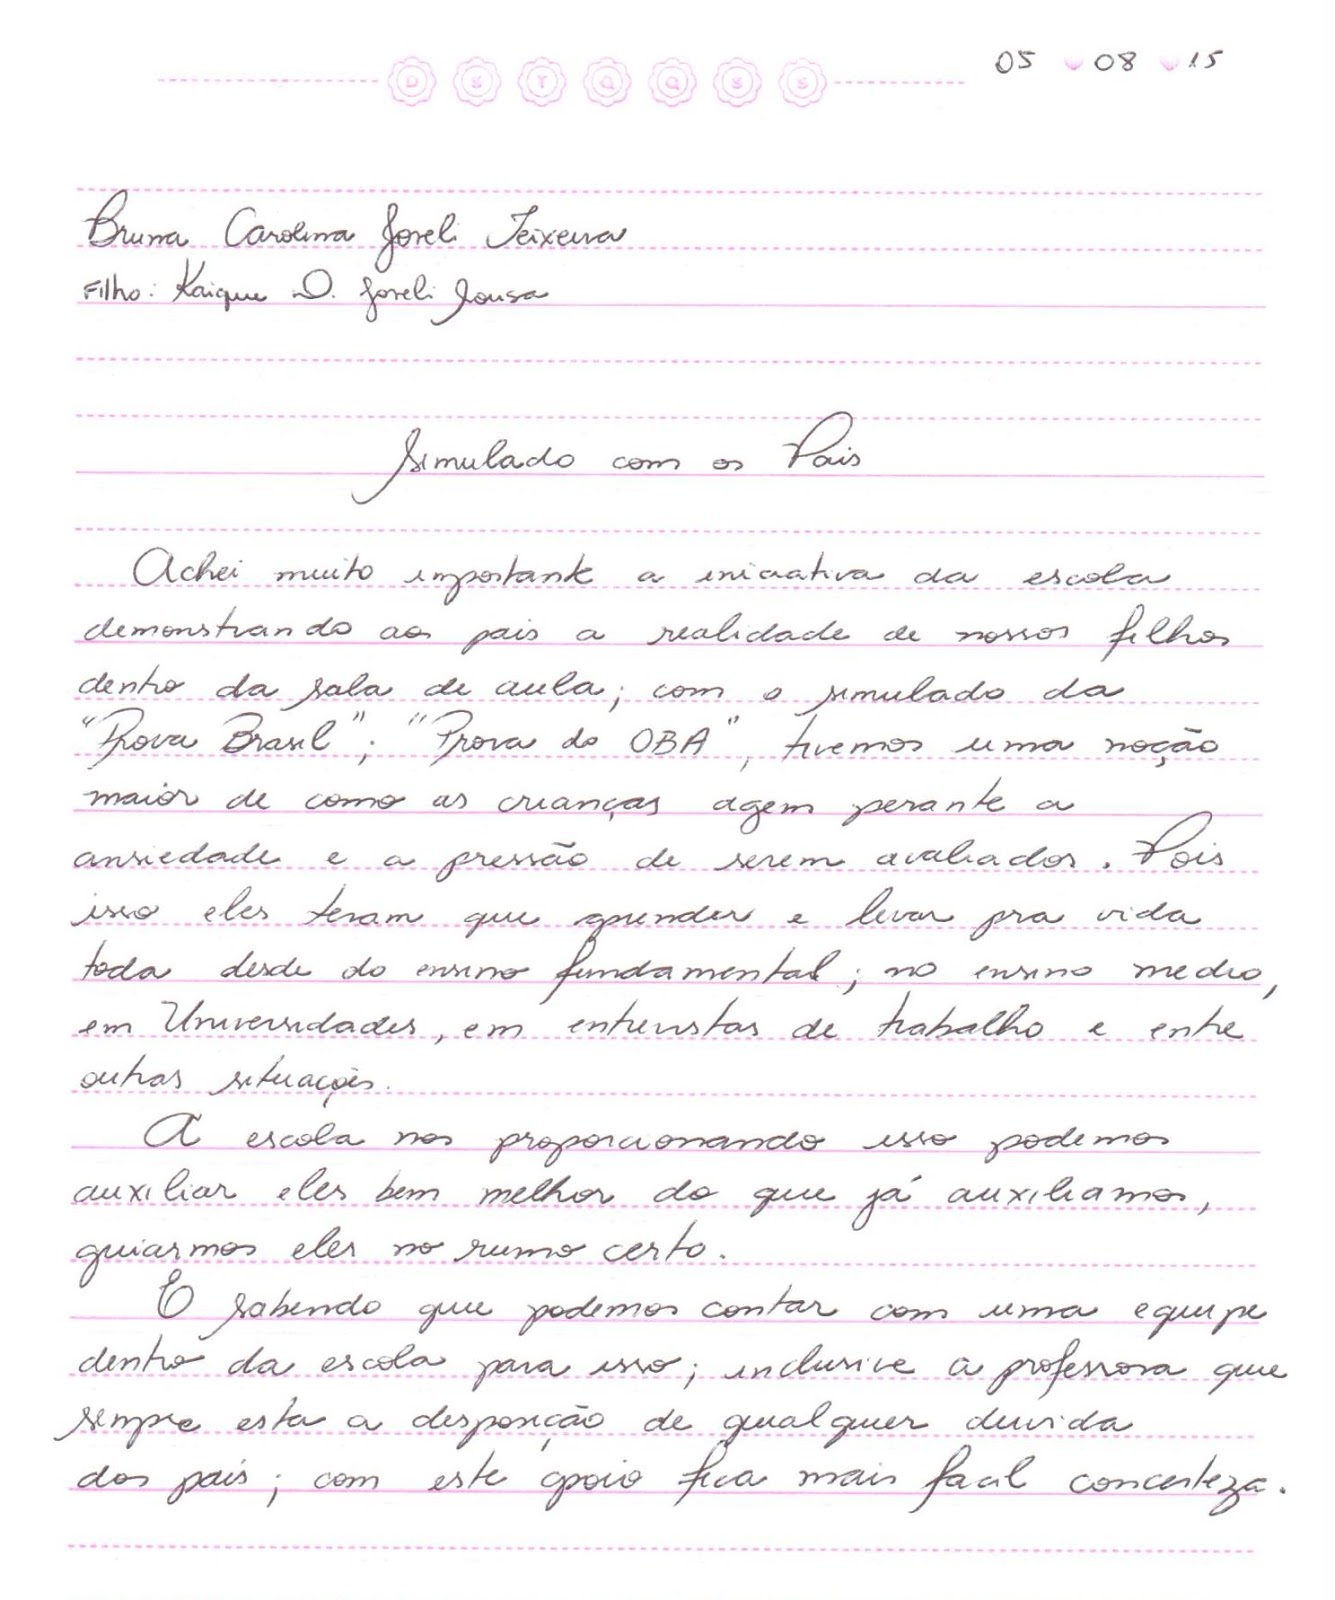 D S T Q Q S S 05 08 15
Bruna Carolina Joreli Teixeira
Filho: Kaique D. Joreli Sousa
Simulado com os Pais
Achei muito importante a iniciativa da escola
demonstrando aos pais a realidade de nossos filhos
dentro da sala de aula; com o simulado da
"Prova Brasil"; "Prova do OBA", tivemos uma noção
maior de como as crianças agem perante a
ansiedade e a pressão de serem avaliados. Pois
isso eles teram que aprender e levar pra vida
toda desde do ensino fundamental; no ensino medio,
em Universidades, em entrevistas de trabalho e entre
outras situações.
A escola nos proporcionando isso podemos
auxiliar eles bem melhor do que já auxiliamos,
guiarmos eles no rumo certo.
E sabendo que podemos contar com uma equipe
dentro da escola para isso; inclusive a professora que
sempre esta a desposição de qualquer duvida
dos pais; com este apoio fica mais facil concerteza.